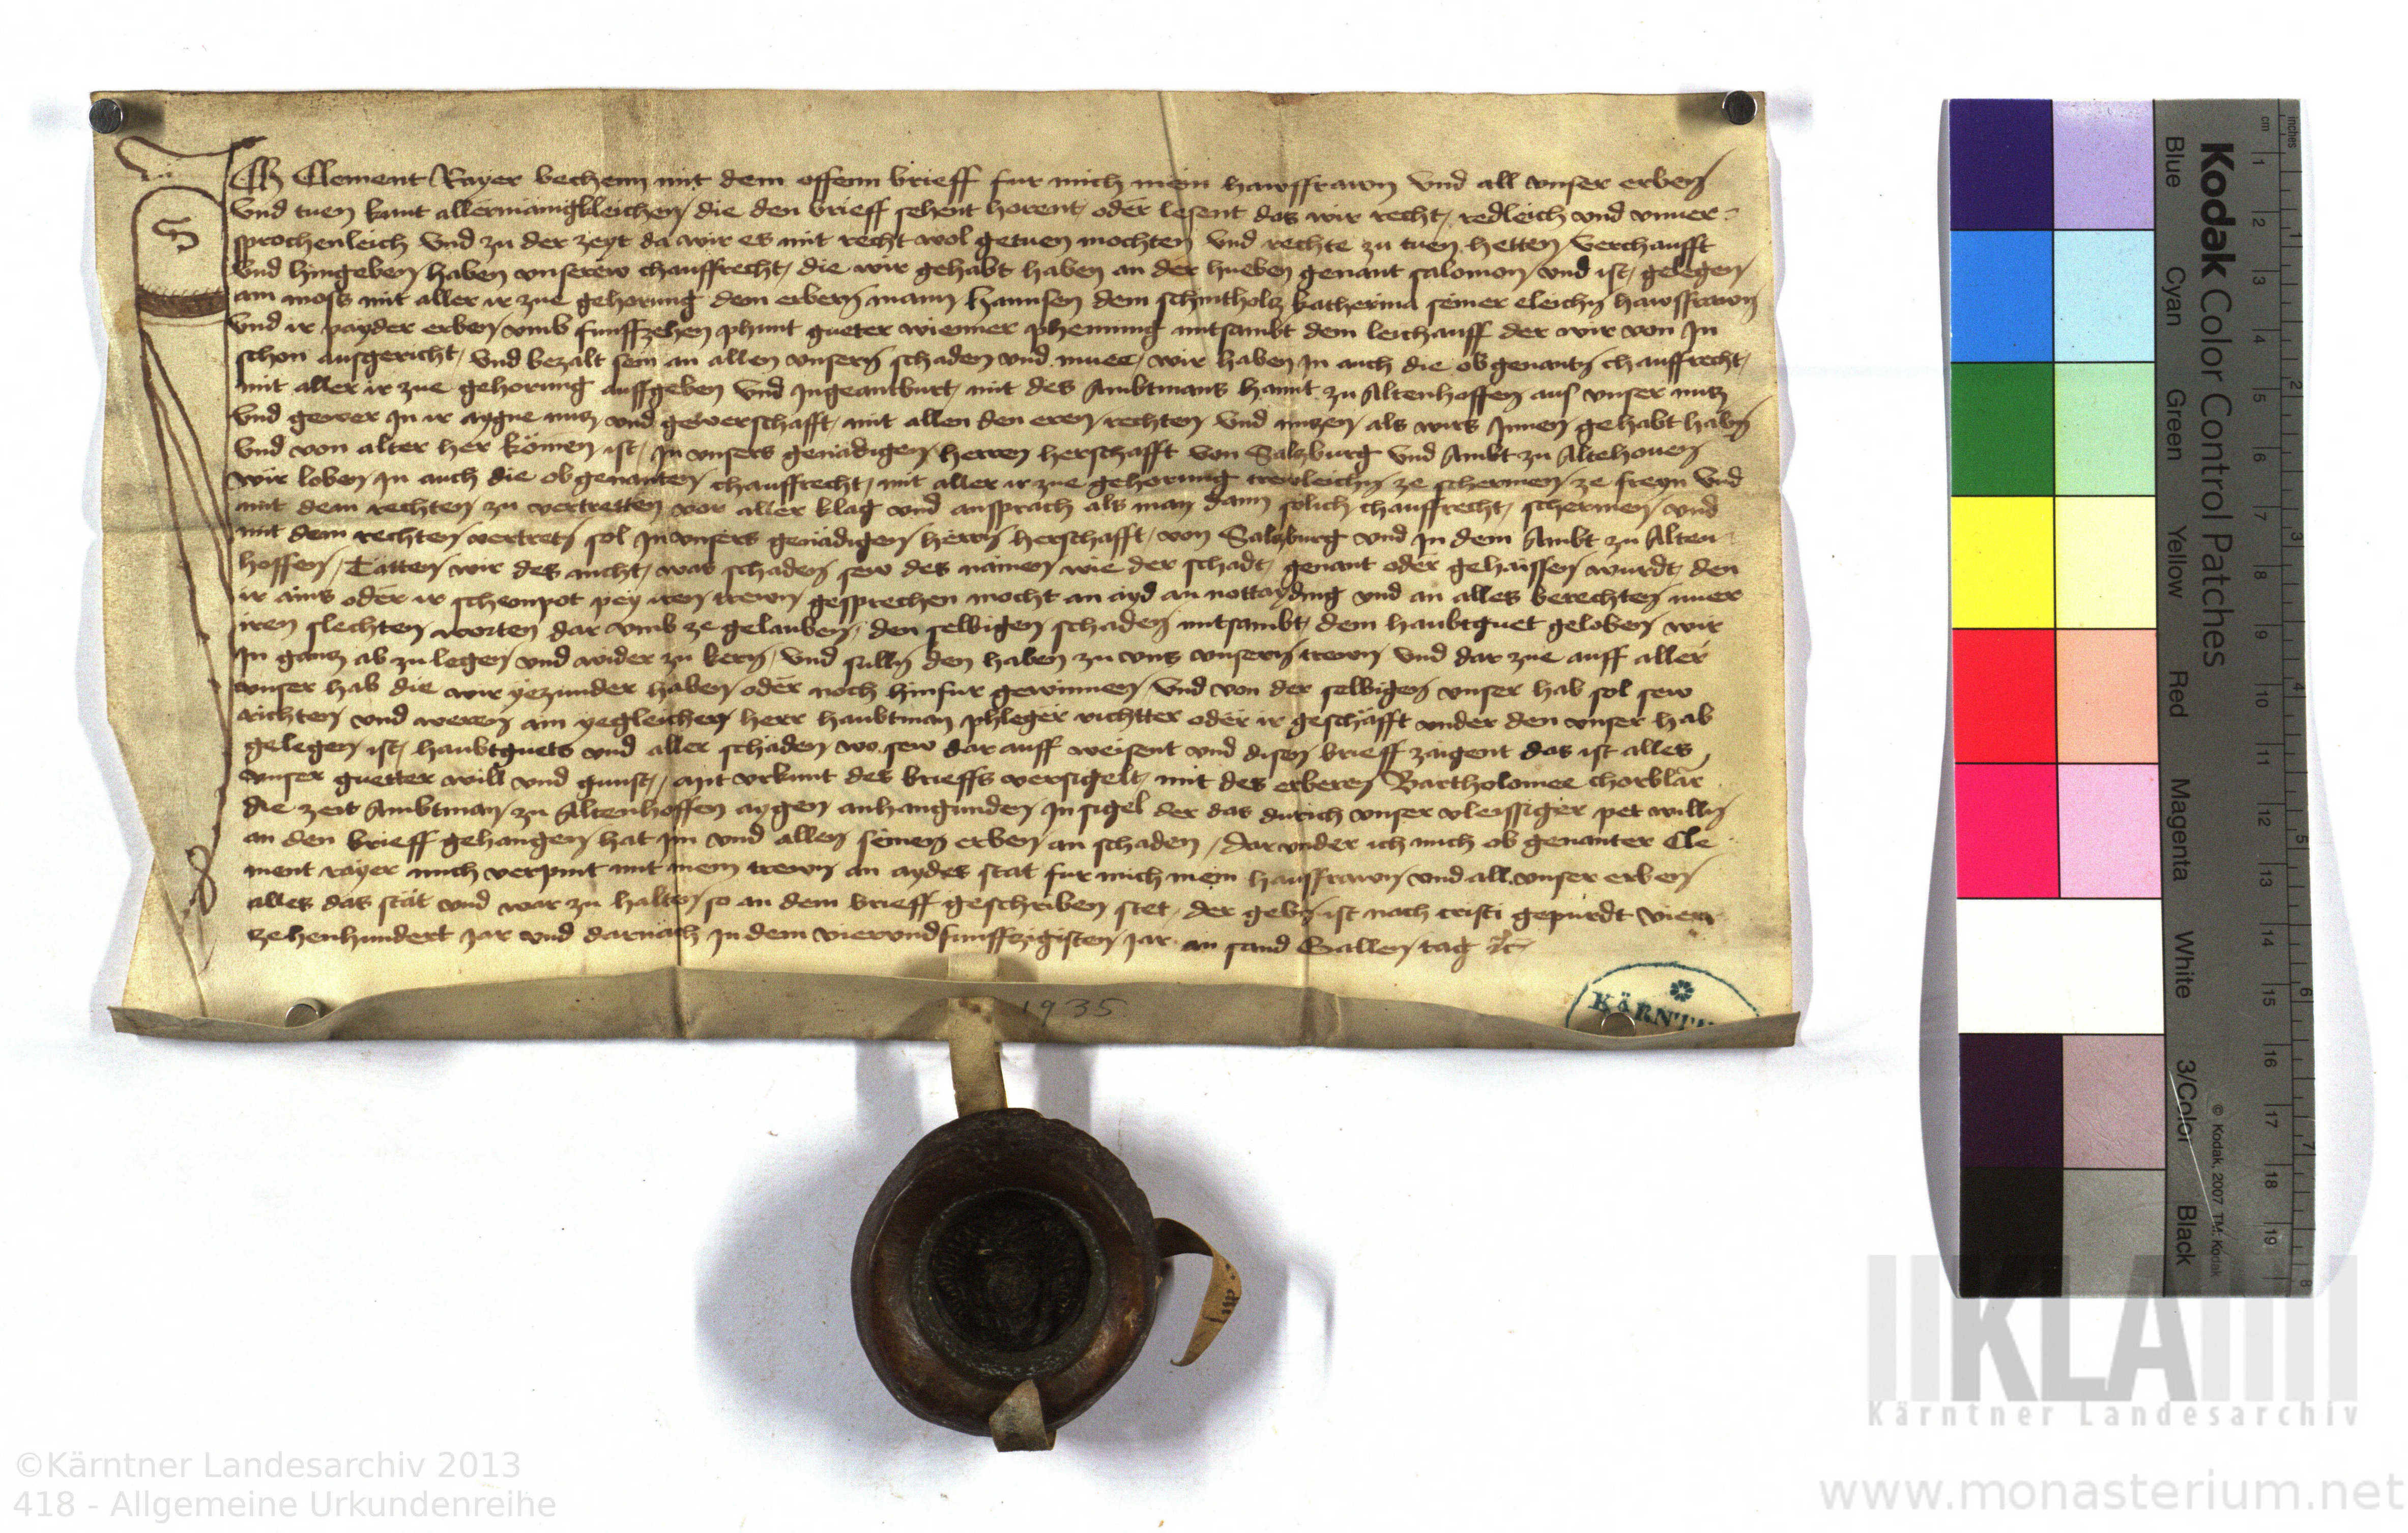 Ich Clement Rayer bechenn mit dem offenn brieff fur mich mein hawsfrawn vnd all vnser erben
vnd tuen kunt allermänigkleichen die den brieff sehent horent oder lesent das wir recht redleich vnd vnuer-
sprochenleich vnd zu der zeyt da wir es mit recht wol getuen mochten vnd rechte zu tuen hetten verchaufft
vnd hingeben haben vnserew chauffrecht die wir gehabt haben an der hueben genant salomon vnd ist gelegen
am moss mit aller ir zue gehorung dem erbern mann Hannsen dem schintholcz katherina seiner eleichn hawsfrawn
vnd ir payder erben vmb funffzehen phunt gueter wienner phenning mitsambt dem leichauff der wir von In
schon ausgericht vnd bezalt sein an allen vnsern schaden vnd muee wir haben In auch die obgenantn chauffrecht
mit aller ir zue gehorung auffgeben vnd Ingeantburt mit des Ambtmans hannt zu Altenhoffen aus vnser nucz
vnd gewer In ir aygne nucz vnd gewerschafft mit allen den eren rechten vnd nuczen als wirs Innen gehabt habn
vnd von alter her komen ist In vnsers genädigen herren herschafft von Salczburg vnd Ambt zu Altehouen
wir loben In auch die obgenanten chauffrecht mit aller ir zue gehorung trewleichn ze schermen ze freyn vnd
mit dem rechten zu vertretten vor aller klag vnd ansprach als man dann solich chauffrecht schermen vnd
mit dem rechten vertretn sol In vnsers genädigen herrn herschafft von Salczburg vnd In dem Ambt zu Alten-
hoffen Tätten wir des nicht was schaden sew des nämen wie der schadt genant oder gehaissen wurdt den
ir ains oder ir scheonpot pey iren trewn gesprechen mocht an ayd an nottayding vnd an alles berechten nuer
iren slechten worten dar vmb ze gelauben den selbigen schaden mitsambt dem haubtguet geloben wir
In gancz ab zu legen vnd wider zu kern vnd sulln den haben zu vns vnsern trewn vnd dar zue auff aller
vnser hab die wir yezunder haben oder noch hinfur gewinnen vnd von der selbigen vnser hab sol sew
richten vnd weren ain yegleicher herr haubtman phleger richtter oder ir geschäfft vnder den vnser hab
gelegen ist haubtguets vnd aller schäden wo sew dar auff weisent vnd disen brieff zaigent das ist alles
vnser guetter will vnd gunst mit vrkunt des brieffs versigelt mit des erberen Bartholomee chorblär
die zeit Ambtman zu Altenhoffen aygen anhangunden Insigel der das durich vnser vleissiger pet willn
an den brieff gehangen hat im vnd allen seinen erben an schaden dar vnder ich mich ob genanter Cle
ment rayer mich verpint mit mein trewn an aydes stat fur mich mein hausfrawn vnd all vnser erben
alles das stät vnd war zu halten so an dem brieff geschriben stet der geben ist nach cristi gepurdt vier
zehenhundert jar vnd darnach In dem vierundfunffzigisten jar an sand Gallen tag etc
1935
KÄRNTN
Kodak Color Control Patches
Blue Cyan Green Yellow Red Magenta White 3/Color Black
© Kodak, 2007 TM: Kodak
cm 1 2 3 4 5 6 7 8 9 10 11 12 13 14 15 16 17 18 19
inches 1 2 3 4 5 6 7 8
KLA
Kärntner Landesarchiv
©Kärntner Landesarchiv 2013
418 - Allgemeine Urkundenreihe
www.monasterium.net